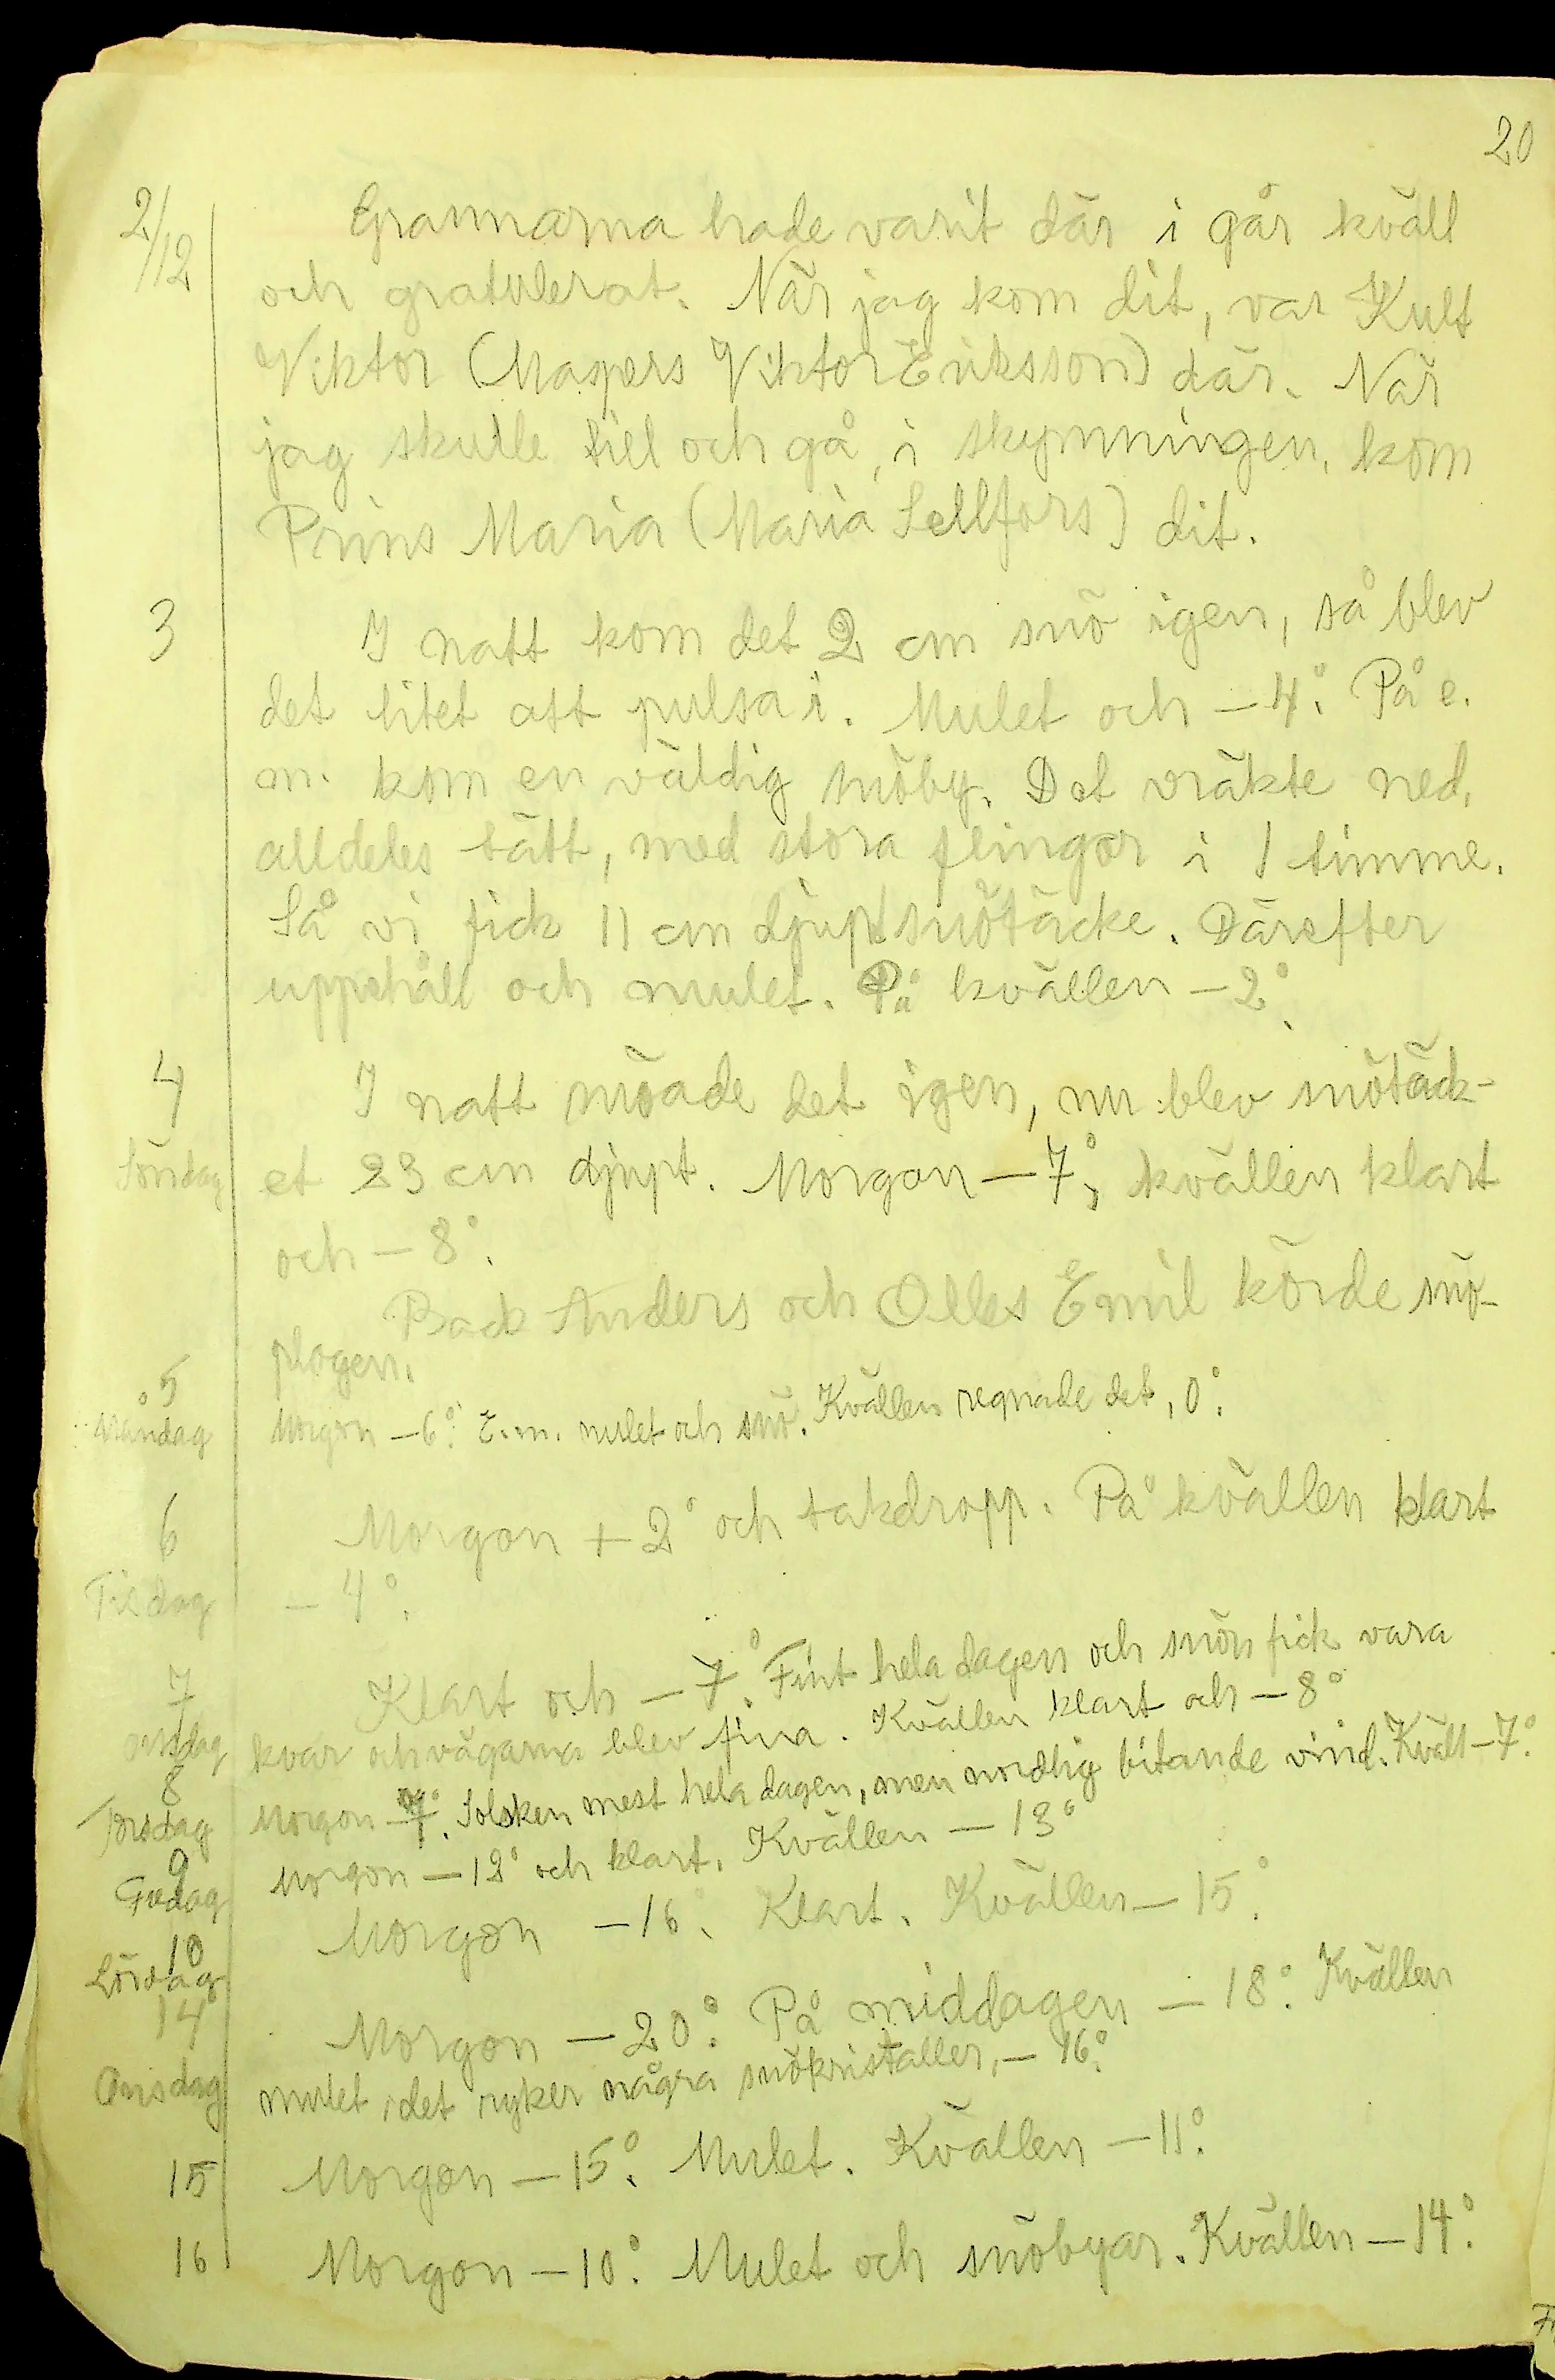 20
2/12 Grannarna hade varit där i går kväll
och gratulerat. När jag kom dit, var Kult
Viktor (Maspers Viktor Eriksson) där. När
jag skulle till och gå, i skymningen, kom
Prins Maria (Maria Sellfors) dit.
3 I natt kom det 2 cm snö igen, så blev
det litet att pulsa i. Mulet och -4°. På e.
m. kom en väldig snöby. Det vräkte ned,
alldeles tätt, med stora flingor i 1 timme.
Så vi fick 11 cm djupt snötäcke. Därefter
uppehåll och mulet. På kvällen -2°.
4 I natt snöade det igen, nu blev snötäck-
Söndag et 23 cm djupt. Morgon -7°, kvällen klart
och -8°.
Back Anders och Olles Emil körde snö-
plogen.
5
Måndag Morgon -6°. E.m. mulet och snö. Kvällen regnade det, 0°.
6 Morgon +2° och takdropp. På kvällen klart
Tisdag -4°.
7 Klart och -7°. Fint hela dagen och snön fick vara
onsdag kvar och vägarna blev fina. Kvällen klart och -8°
8
Torsdag Morgon -7°. Solsken mest hela dagen, men nordlig bitande vind. Kväll -7°.
9
Fredag Morgon -12° och klart. Kvällen -13°
10
Lördag Morgon -16°. Klart. Kvällen -15°.
14 Morgon -20°. På middagen -18°. Kvällen
Onsdag mulet, det ryker några snökristaller, -16°.
15 Morgon -15°. Mulet. Kvällen -11°.
16 Morgon -10°. Mulet och snöbyar. Kvällen -14°.